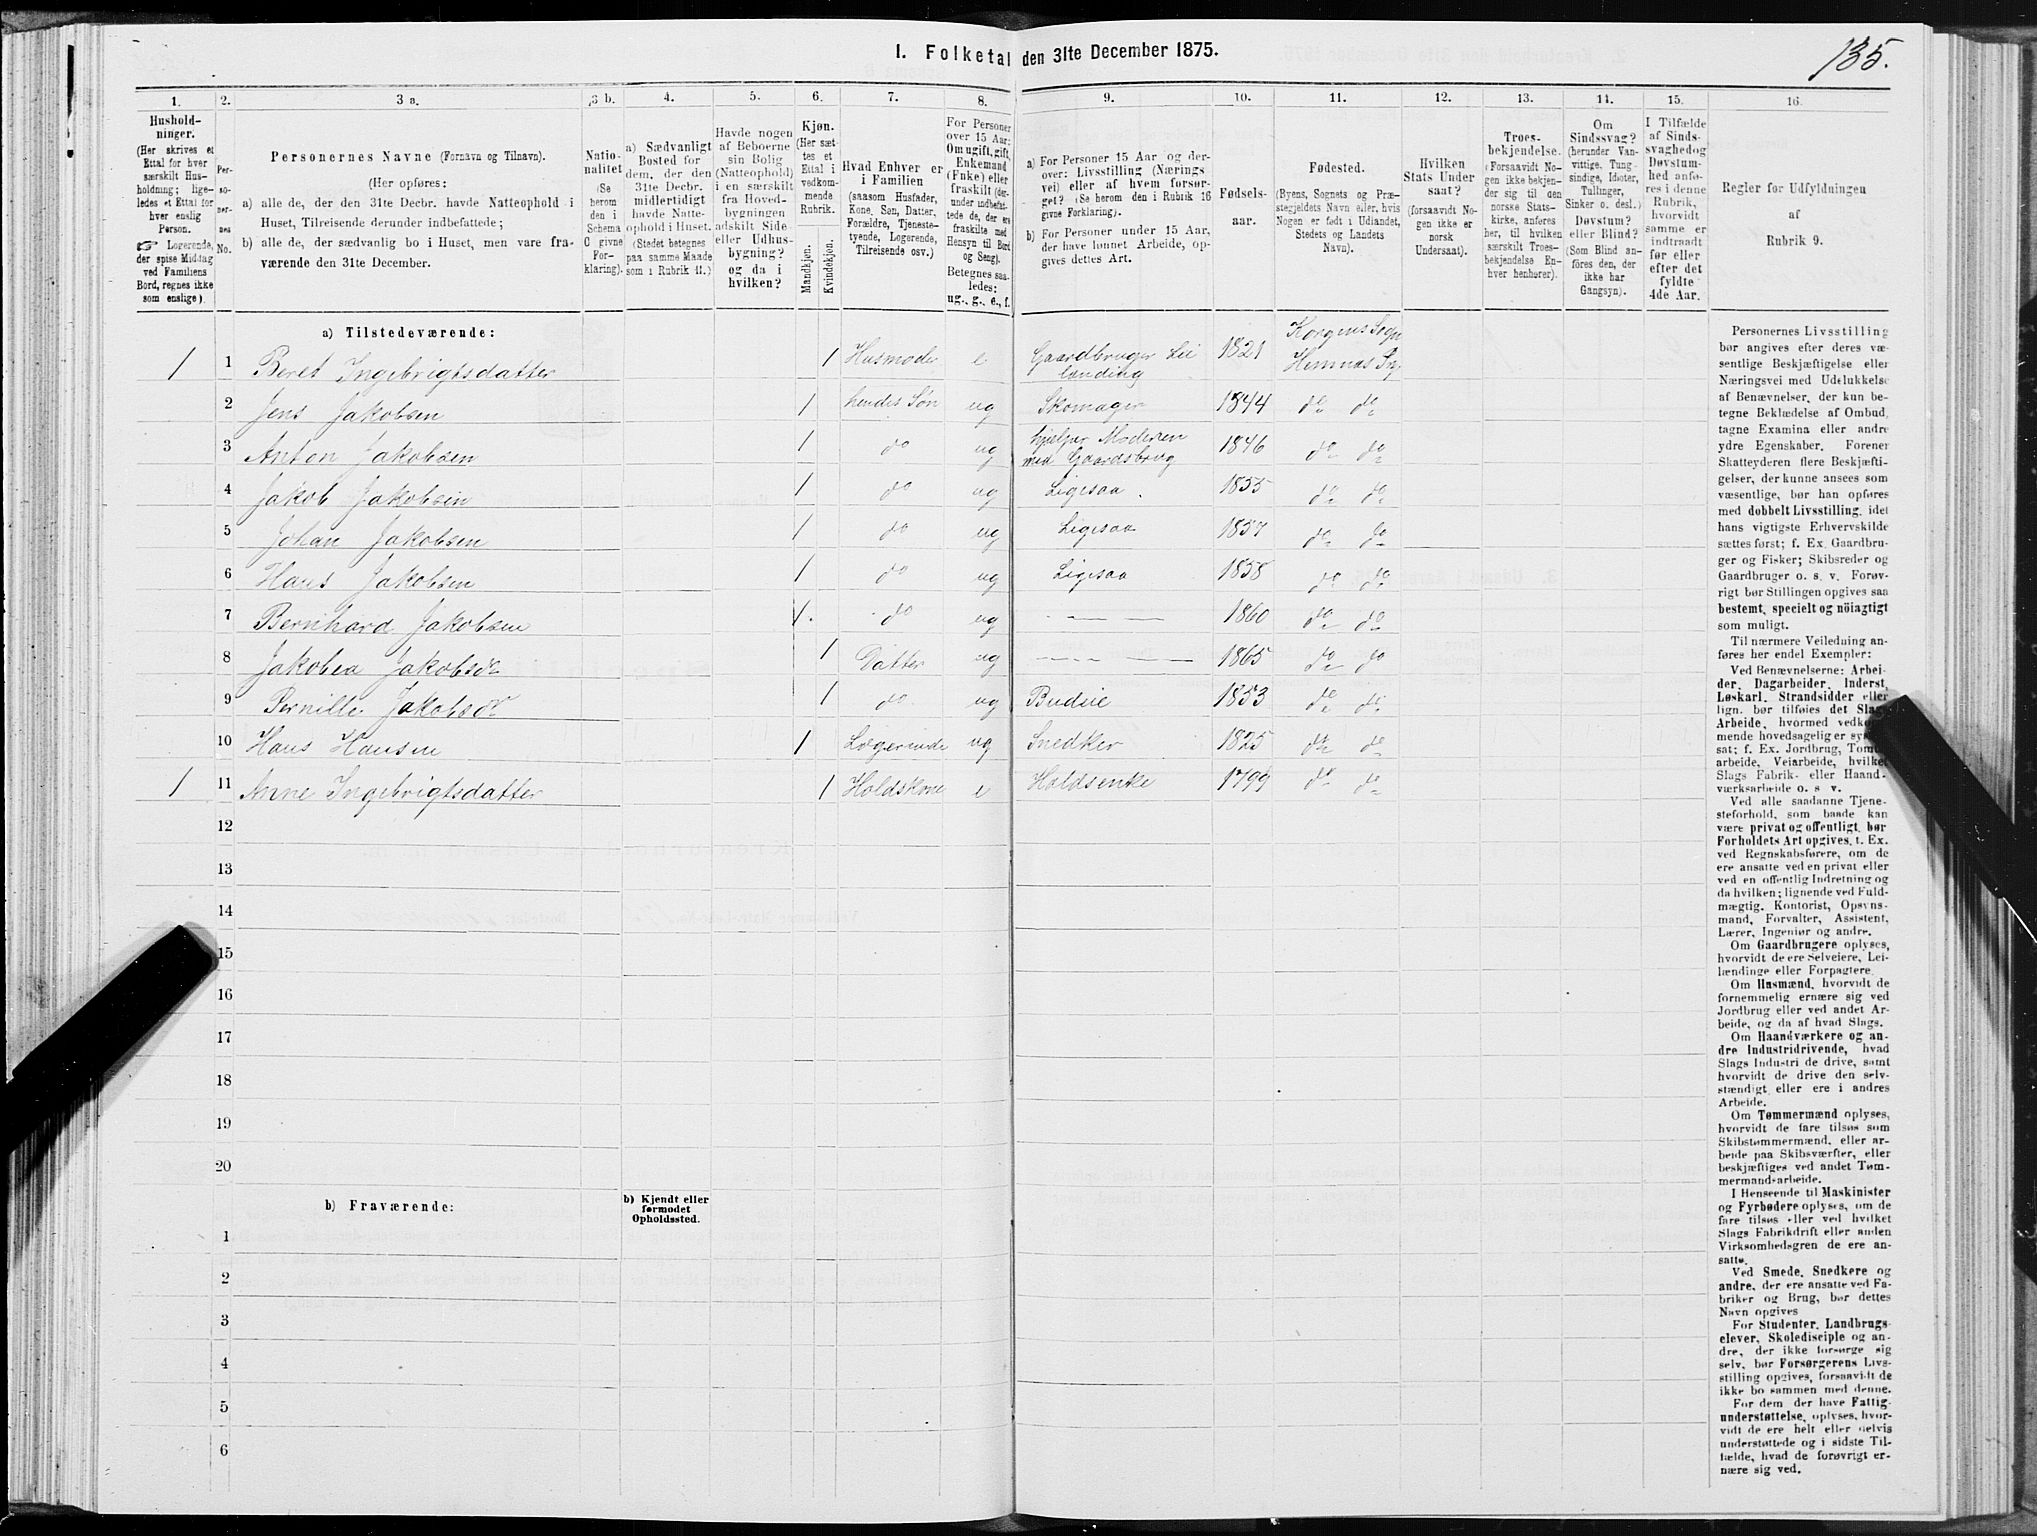 I. Folketal den 31te December 1875.
135.
1.
2.
3 a.
3 b.
4.
5.
6.
7.
8.
9.
10.
11.
12.
13.
14.
15.
16.
Hushold-
ninger.
(Her skrives et
Ettal for hver
særskilt Hus-
holdning; lige-
ledes et Ettal for
hver enslig
Person.
☞ Logerende,
der spise Middag
ved Familiens
Bord, regnes ikke
som enslige).
Per-
so-
ner-
nes
No.
Personernes Navne (Fornavn og Tilnavn).
(Her opføres:
a) alle de, der den 31te Decbr. havde Natteophold i
Huset, Tilreisende derunder indbefattede;
b) alle de, der sædvanlig bo i Huset, men vare fra-
værende den 31te December.
Natio-
nalitet
(Se
herom
den i
Schema
C givne
For-
klaring).
a) Sædvanligt
Bosted for
dem, der den
31te Decbr.
midlertidigt
havde Natte-
ophold i Huset.
(Stedet betegnes
paa samme Maade
som i Rubrik 11.)
Havde nogen
af Beboerne
sin Bolig
(Natteophold)
i en særskilt
fra Hoved-
bygningen
adskilt Side-
eller Udhus-
bygning?
og da i
hvilken?
Kjøn.
(Her sæt-
tes et
Ettal i
vedkom-
mende
Rubrik.
Mandkjøn.
Kvindekjøn.
Hvad Enhver er
i Familien
(saasom Husfader,
Kone, Søn, Datter,
Forældre, Tjeneste-
tyende, Logerende,
Tilreisende osv.)
For Personer
over 15 Aar:
Om ugift, gift,
Enkemand
(Enke) eller
fraskilt (der-
under indbefat-
tede de, der ere
fraskilte med
Hensyn til Bord
og Seng).
Betegnes saa-
ledes:
ug., g., e., f.
a) For Personer 15 Aar og der-
over: Livsstilling (Nærings-
vei) eller af hvem forsør-
get? (Se herom den i Rubrik 16
givne Forklaring).
b) For Personer under 15 Aar,
der have lønnet Arbeide, op-
gives dettes Art.
Fødsels-
aar.
Fødested.
(Byens, Sognets og Præ-
stegjeldets Navn eller, hvis
Nogen er født i Udlandet,
Stedets og Landets
Navn).
Hvilken
Stats Under
saat?
(forsaavidt No-
gen ikke er
norsk
Undersaat).
Troes-
bekjendelse.
(Forsaavidt No-
gen ikke bekjen-
der sig til den
norske Stats-
kirke, anføres
her, til hvilken
særskilt Troes-
bekjendelse En-
hver henhører).
Om
Sindssvag?
(herunder Van-
vittige, Tung-
sindige, Idioter,
Tullinger,
Sinker o. desl.)
Døvstum?
eller Blind?
(Som Blind an-
føres den, der
ikke har
Gangsyn).
I Tilfælde
af Sinds-
svaghed og
Døvstum-
hed anfø-
res i denne
Rubrik,
hvorvidt
samme er
indtraadt
før eller
efter det
fyldte
4de Aar.
Regler før Udfyldningen
af
Rubrik 9.
a) Tilstedeværende:
1 1 Beret Ingebrigtsdatter 1 Husmoder e Gaardbruger Lei lænding 1821 Korgens Sogn Hemnæs Prg
2 Jens Jakobsen 1 hendes Søn ug Skomager 1844 do do
3 Anton Jakobsen 1 do ug hjelper Moderen med Gaardsbrug 1846 do do
4 Jakob Jakobsen 1 do ug Ligesaa 1855 do do
5 Johan Jakobsen 1 do ug Ligesaa 1857 do do
6 Hans Jakobsen 1 do ug Ligesaa 1858 do do
7 Bernhard Jakobsen 1 do ug — — 1860 do do
8 Jakobea Jakobsdr 1 Datter ug — — — 1865 do do
9 Pernille Jakobsdr 1 do ug Budeie 1853 do do
10 Hans Hansen 1 Logerende ug Snedker 1825 do do
1 11 Anne Ingebrigtsdatter 1 Holdskone e Holdsenke 1799 do do
12
13
14
15
16
17
18
19
20
b) Fraværende:
b) Kjendt eller
formodet
Opholdssted.
1
2
3
4
5
6
Personernes Livsstilling
bør angives efter deres væ-
sentlige Beskjæftigelse eller
Næringsvei med Udelukkelse
af Benævnelser, der kun be-
tegne Beklædelse af Ombud,
tagne Examina eller andre
ydre Egenskaber. Forener
Skatteyderen flere Beskjæfti-
gelser, der kunne ansees som
væsentlige, bør han opføres
med dobbelt Livsstilling, idet
hans vigtigste Erhvervskilde
sættes først; f. Ex. Gaardbru-
ger og Fisker; Skibsreder og
Gaardbruger o. s. v. Forøv-
rigt bør Stillingen opgives saa
bestemt, specielt og nøiagtigt
som muligt.
Til nærmere Veiledning an-
føres her endel Exempler:
Ved Benævnelserne: Arbei-
der, Dagarbeider, Inderst,
Løskarl, Strandsidder eller
lign. bør tilføies det Slags
Arbeide, hvormed vedkom-
mende hovedsagelig er syssel-
sat; f. Ex. Jordbrug, Tomt-
arbeide, Veiarbeide, hvilket
Slags Fabrik- eller Haand-
værksarbeide o. s v.
Ved alle saadanne Tjene-
steforhold, som baade kan
være privat og offentligt, bør
Forholdets Art opgives, t. Ex.
ved Regnskabsførere, om de
ere ansatte ved en privat eller
ved en offentlig Indretning og
da hvilken; lignende ved Fuld-
mægtig, Kontorist, Opsyns-
mand, Forvalter, Assistent,
Lærer, Ingeniør og andre.
Om Gaardbrugere oplyses,
hvorvidt de ere Selveiere, Lei-
lændinge eller Forpagtere.
Om Husmænd, hvorvidt de
fornemmelig ernære sig ved
Jordbrug eller ved andet Ar-
beide, og da af hvad Slags.
Om Haandværkere og an-
dre Industridrivende, hvad
Slags Industri de drive, samt
hvorvidt de drive den selv-
stændigt eller ere i andres
Arbeide.
Om Tømmermænd oplyses,
hvorvidt de fare tilsøs som
Skibstømmermænd, eller ar-
beide paa Skibsværfter, eller
beskjæftiges ved andet Tøm-
mermandsarbeide.
I Henseende til Maskinister
og Fyrbødere oplyses, om de
fare tilsøs eller ved hvilket
Slags Fabrikdrift eller anden
Virksomhedsgren de ere an-
satte.
Ved Smede, Snedkere og
andre, der ere ansatte ved Fa-
briker og Brug, bør dettes
Navn opgives
For Studenter, Landbrugs-
elever, Skoledisciple og an-
dre, der ikke forsørge sig
selv, bør Forsørgerens Livs-
stilling opgives, forsaavidt de
ikke bo sammen med denne.
For dem der have Fattig-
understøttelse, oplyses, hvor-
vidt de ere helt eller delvis
understøttede og i sidste Til-
fælde, hvad de forøvrigt er-
nære sig ved.